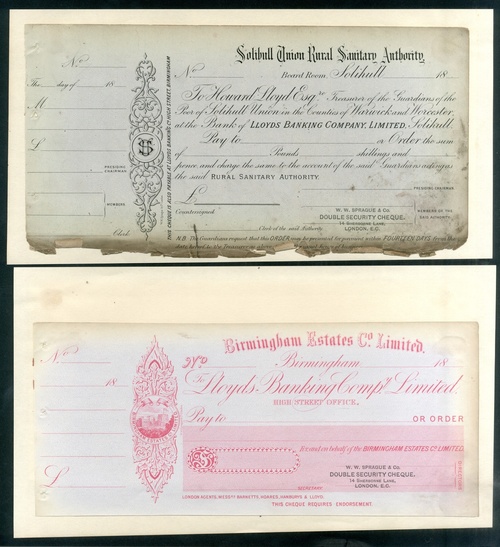 Solihull Union Rural Sanitary Authority.
No
Board Room, Solihull 18
The day of 18
M
To Howard Lloyd Esq.re Treasurer of the Guardians of the
Poor of Solihull Union in the Counties of Warwick and Worcester,
at the Bank of LLOYDS BANKING COMPANY, LIMITED, Solihull.
Pay to or Order the sum
of Pounds shillings and
pence and charge the same to the account of the said Guardians acting as
the said RURAL SANITARY AUTHORITY.
£
PRESIDING CHAIRMAN
MEMBERS
Clerk
THIS CHEQUE IS ALSO PAYABLE AT LLOYDS BANKING CO HIGH STREET, BIRMINGHAM
£
PRESIDING CHAIRMAN
Countersigned
Clerk of the said Authority
W. W. SPRAGUE & Co.
DOUBLE SECURITY CHEQUE.
14 SHERBORNE LANE,
LONDON, E.C.
MEMBERS OF THE
SAID AUTHORITY.
N.B. The Guardians request that this ORDER may be presented for payment within FOURTEEN DAYS, from the
Birmingham Estates Co. Limited.
No
No
Birmingham 18
18
To Lloyds Banking Compy. Limited.
HIGH STREET OFFICE.
Pay to OR ORDER
For and on behalf of the BIRMINGHAM ESTATES CO LIMITED.
£
W. W. SPRAGUE & Co.
DOUBLE SECURITY CHEQUE.
14 SHERBORNE LANE,
LONDON, E.C.
SECRETARY
LONDON AGENTS, MESSRS BARNETTS, HOARES, HANBURYS & LLOYD.
THIS CHEQUE REQUIRES ENDORSEMENT.